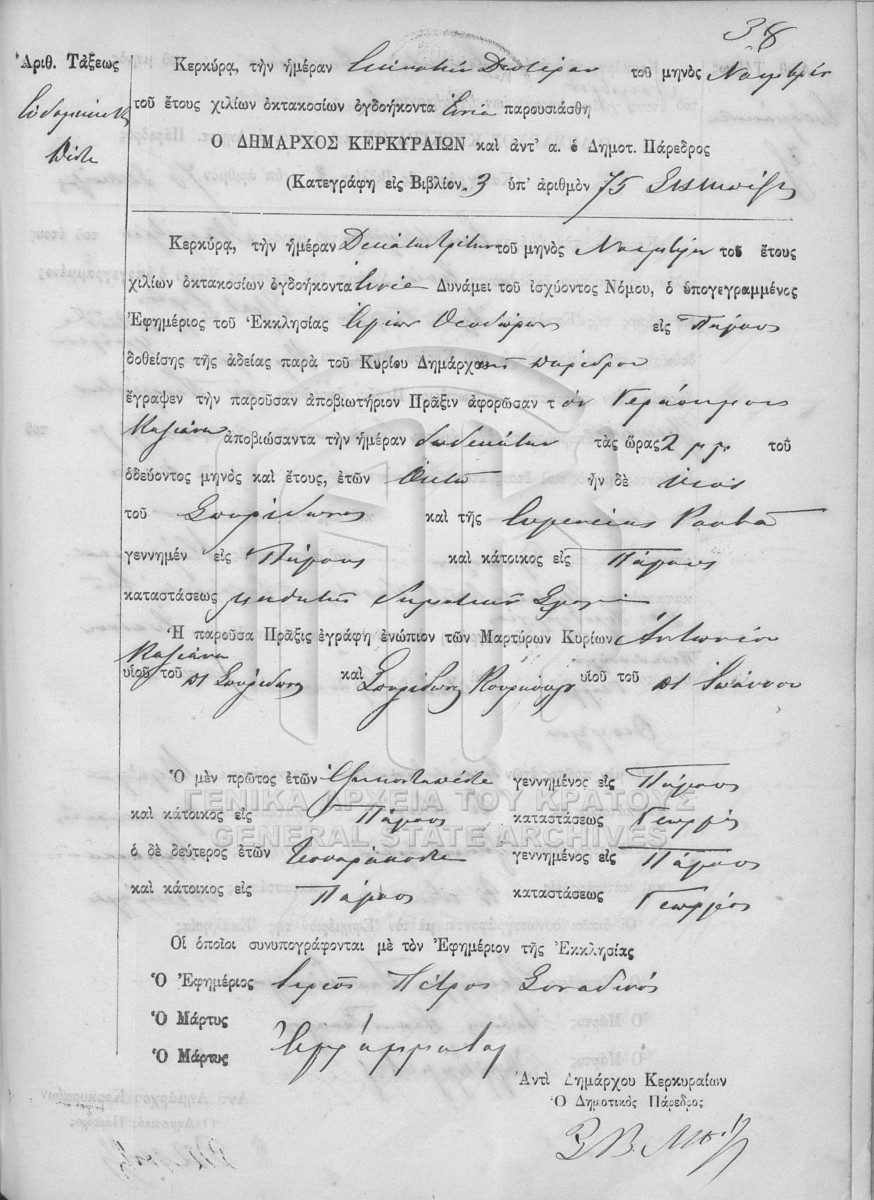 38
Ἀριθ. Τάξεως
Κερκύρα, τὴν ἡμέραν Εἰκοστὴν Δευτέραν τοῦ μηνὸς Νοεμβρίου
τοῦ ἔτους χιλίων ὀκτακοσίων ὀγδοήκοντα Ἐννέα παρουσιάσθη
Ἑβδομήκοντα
Πέντε
Ὁ ΔΗΜΑΡΧΟΣ ΚΕΡΚΥΡΑΙΩΝ καὶ ἀντ' α. ὁ Δημοτ. Πάρεδρος
(Κατεγράφη εἰς Βιβλίον 3 ὑπ' ἀριθμὸν 75
Κερκύρα, τὴν ἡμέραν Δεκάτην Τρίτην τοῦ μηνὸς Νοεμβρίου τοῦ ἔτους
χιλίων ὀκτακοσίων ὀγδοήκοντα Ἐννέα Δυνάμει τοῦ ἰσχύοντος Νόμου, ὁ ὑπογεγραμμένος
Ἐφημέριος τοῦ Ἐκκλησίας Ἁγίων Θεοδώρων εἰς Πάγους
δοθείσης τῆς ἀδείας παρὰ τοῦ Κυρίου Δημάρχου Παρέδρου
ἔγραψεν τὴν παροῦσαν ἀποβιωτήριον Πρᾶξιν ἀφορῶσαν τ όν Γεράσιμον
Καζιάνη ἀποβιώσαντα τὴν ἡμέραν δωδεκάτην τὰς ὥρας 2 μμ τοῦ
ὁδεύοντος μηνὸς καὶ ἔτους, ἐτῶν Ὀκτώ ἦν δὲ υἱός
τοῦ Σπυρίδωνος καὶ τῆς Εὐγενείας
γεννημέν εἰς Πάγους καὶ κάτοικος εἰς Πάγους
καταστάσεως μαθητὴς Δημοτικοῦ Σχολείου
Ἡ παροῦσα Πρᾶξις ἐγράφη ἐνώπιον τῶν Μαρτύρων Κυρίων Ἀντωνίου
Καζιάνη
υἱοῦ τοῦ Σπυρίδωνος καὶ Σπυρίδωνος Κουρκούλη υἱοῦ τοῦ Ἰωάννου
Ὁ μὲν πρῶτος ἐτῶν Ἑξηκονταπέντε γεννημένος εἰς Πάγους
ΓΕΝΙΚΑ ΑΡΧΕΙΑ ΤΟΥ ΚΡΑΤΟΥΣ
καὶ κάτοικος εἰς Πάγους καταστάσεως Γεωργός
GENERAL STATE ARCHIVES
ὁ δὲ δεύτερος ἐτῶν γεννημένος εἰς Πάγους
καὶ κάτοικος εἰς Πάγους καταστάσεως Γεωργός
Οἱ ὁποῖοι συνυπογράφονται μὲ τὸν Ἐφημέριον τῆς Ἐκκλησίας
Ὁ Ἐφημέριος Ἱερεὺς Πέτρος Σπαδινός
Ὁ Μάρτυς
Ὁ Μάρτυς Ἀγράμματοι
Ἀντὶ Δημάρχου Κερκυραίων
Ὁ Δημοτικὸς Πάρεδρος